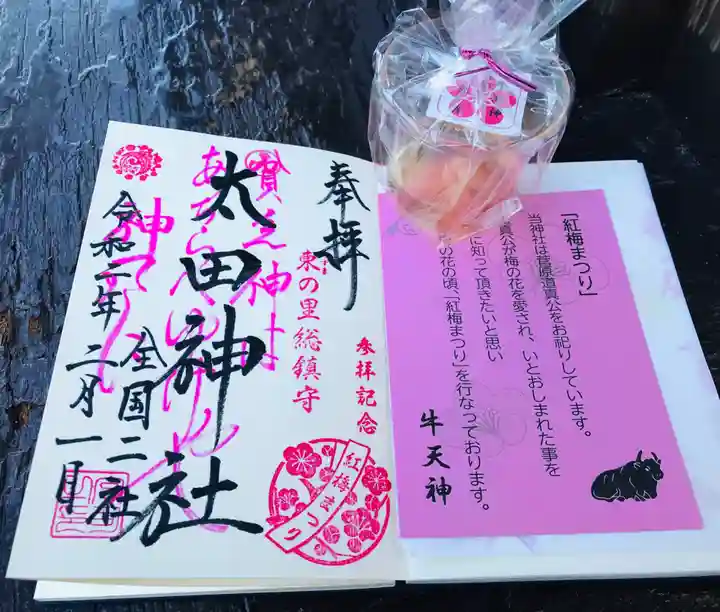 奉拝
東の里総鎮守
参拝記念
太田神社
全国二社
令和二年二月一日
紅梅まつり
神
「紅梅まつり」
当神社は菅原道真公をお祀りしています。
真公が梅の花を愛され、いとおしまれた事を
に知って頂きたいと思い
の花の頃、「紅梅まつり」を行なっております。
牛天神